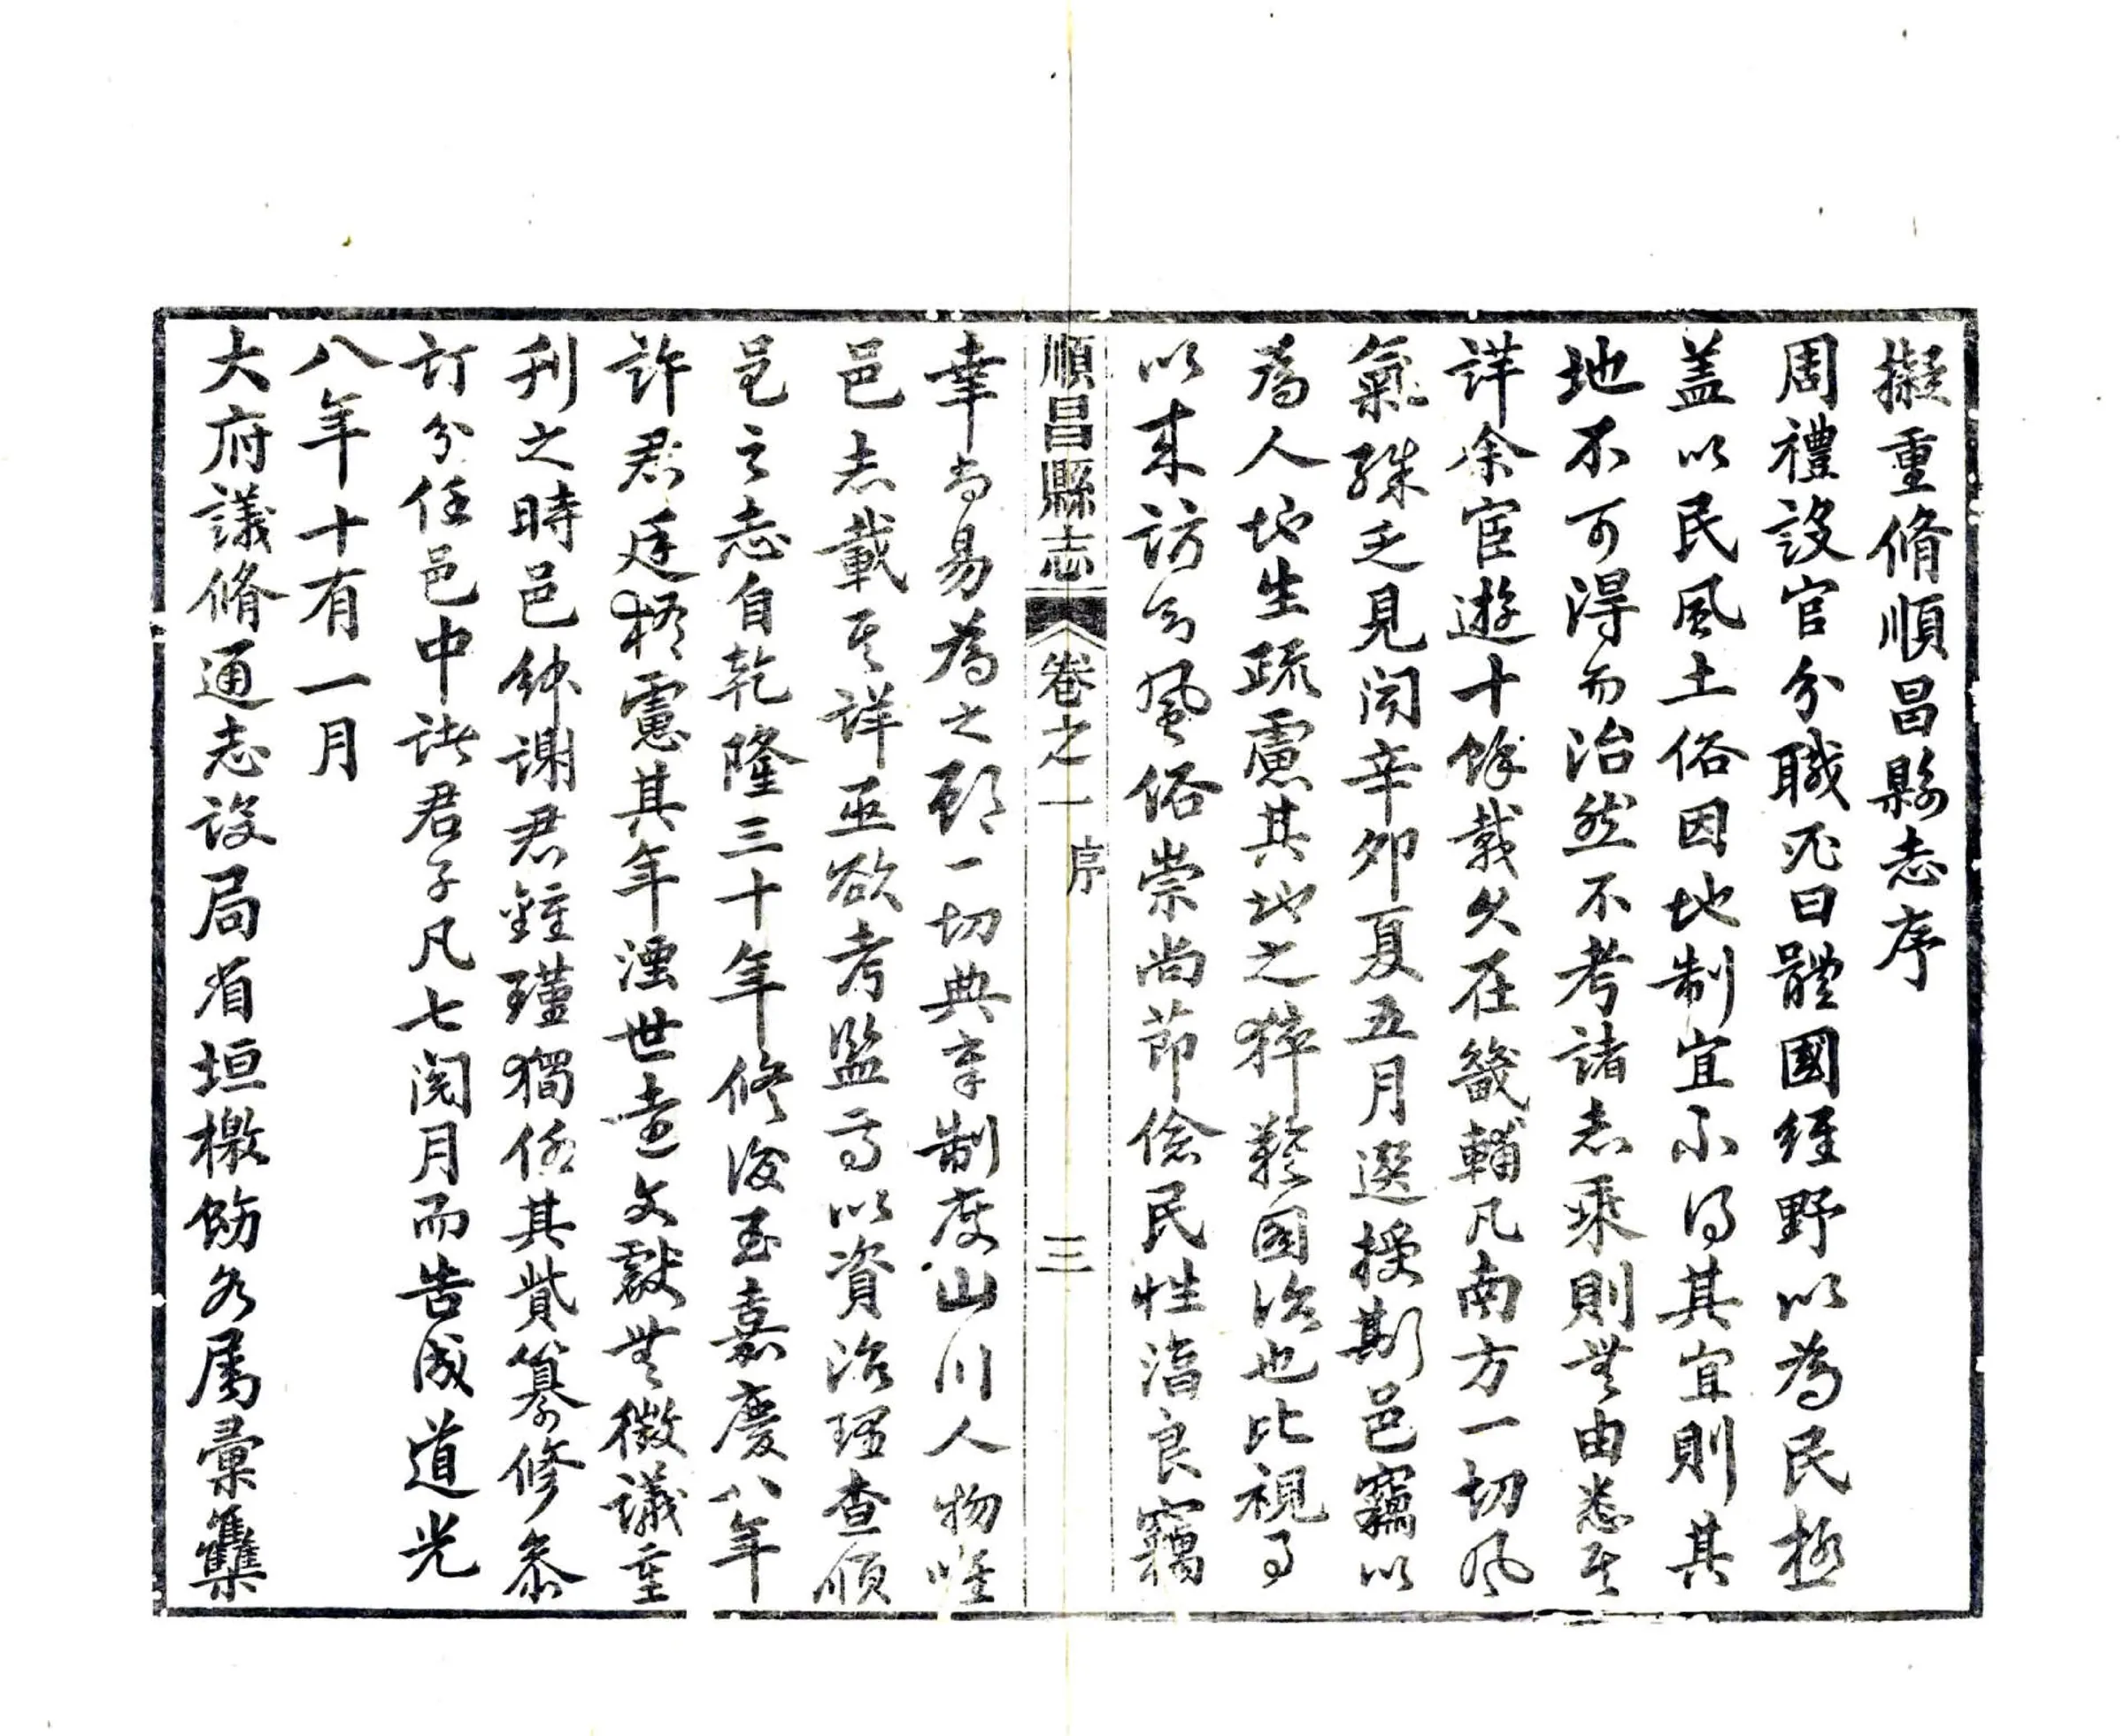 擬重脩順昌縣志序
周禮設官分職必曰體國經野以為民極
盖以民風土俗因地制宜不得其宜則其
地不可得而治然不考諸志乘則無由悉其
詳余宦遊十餘載久在畿輔凡南方一切風
氣殊乏見聞辛卯夏五月選授斯邑竊以
為人地生疏慮其地之猝難圖治也比視事
以来訪分風俗崇尚節儉民性淄良竊
順昌縣志
卷之一
序
三
幸尚易為之顧一切典章制度山川人物唯
邑志載其詳亟欲考監焉以資治理查順
邑之志自乾隆三十年修後至嘉慶八年
許君庭梧慮其年湮世遠文獻無徵議重
刊之時邑紳謝君鍾瑾獨任其貲纂修叅
訂分任邑中諸君子凡七閱月而告成道光
八年十有一月
大府議脩通志設局省垣檄飭各屬彙集